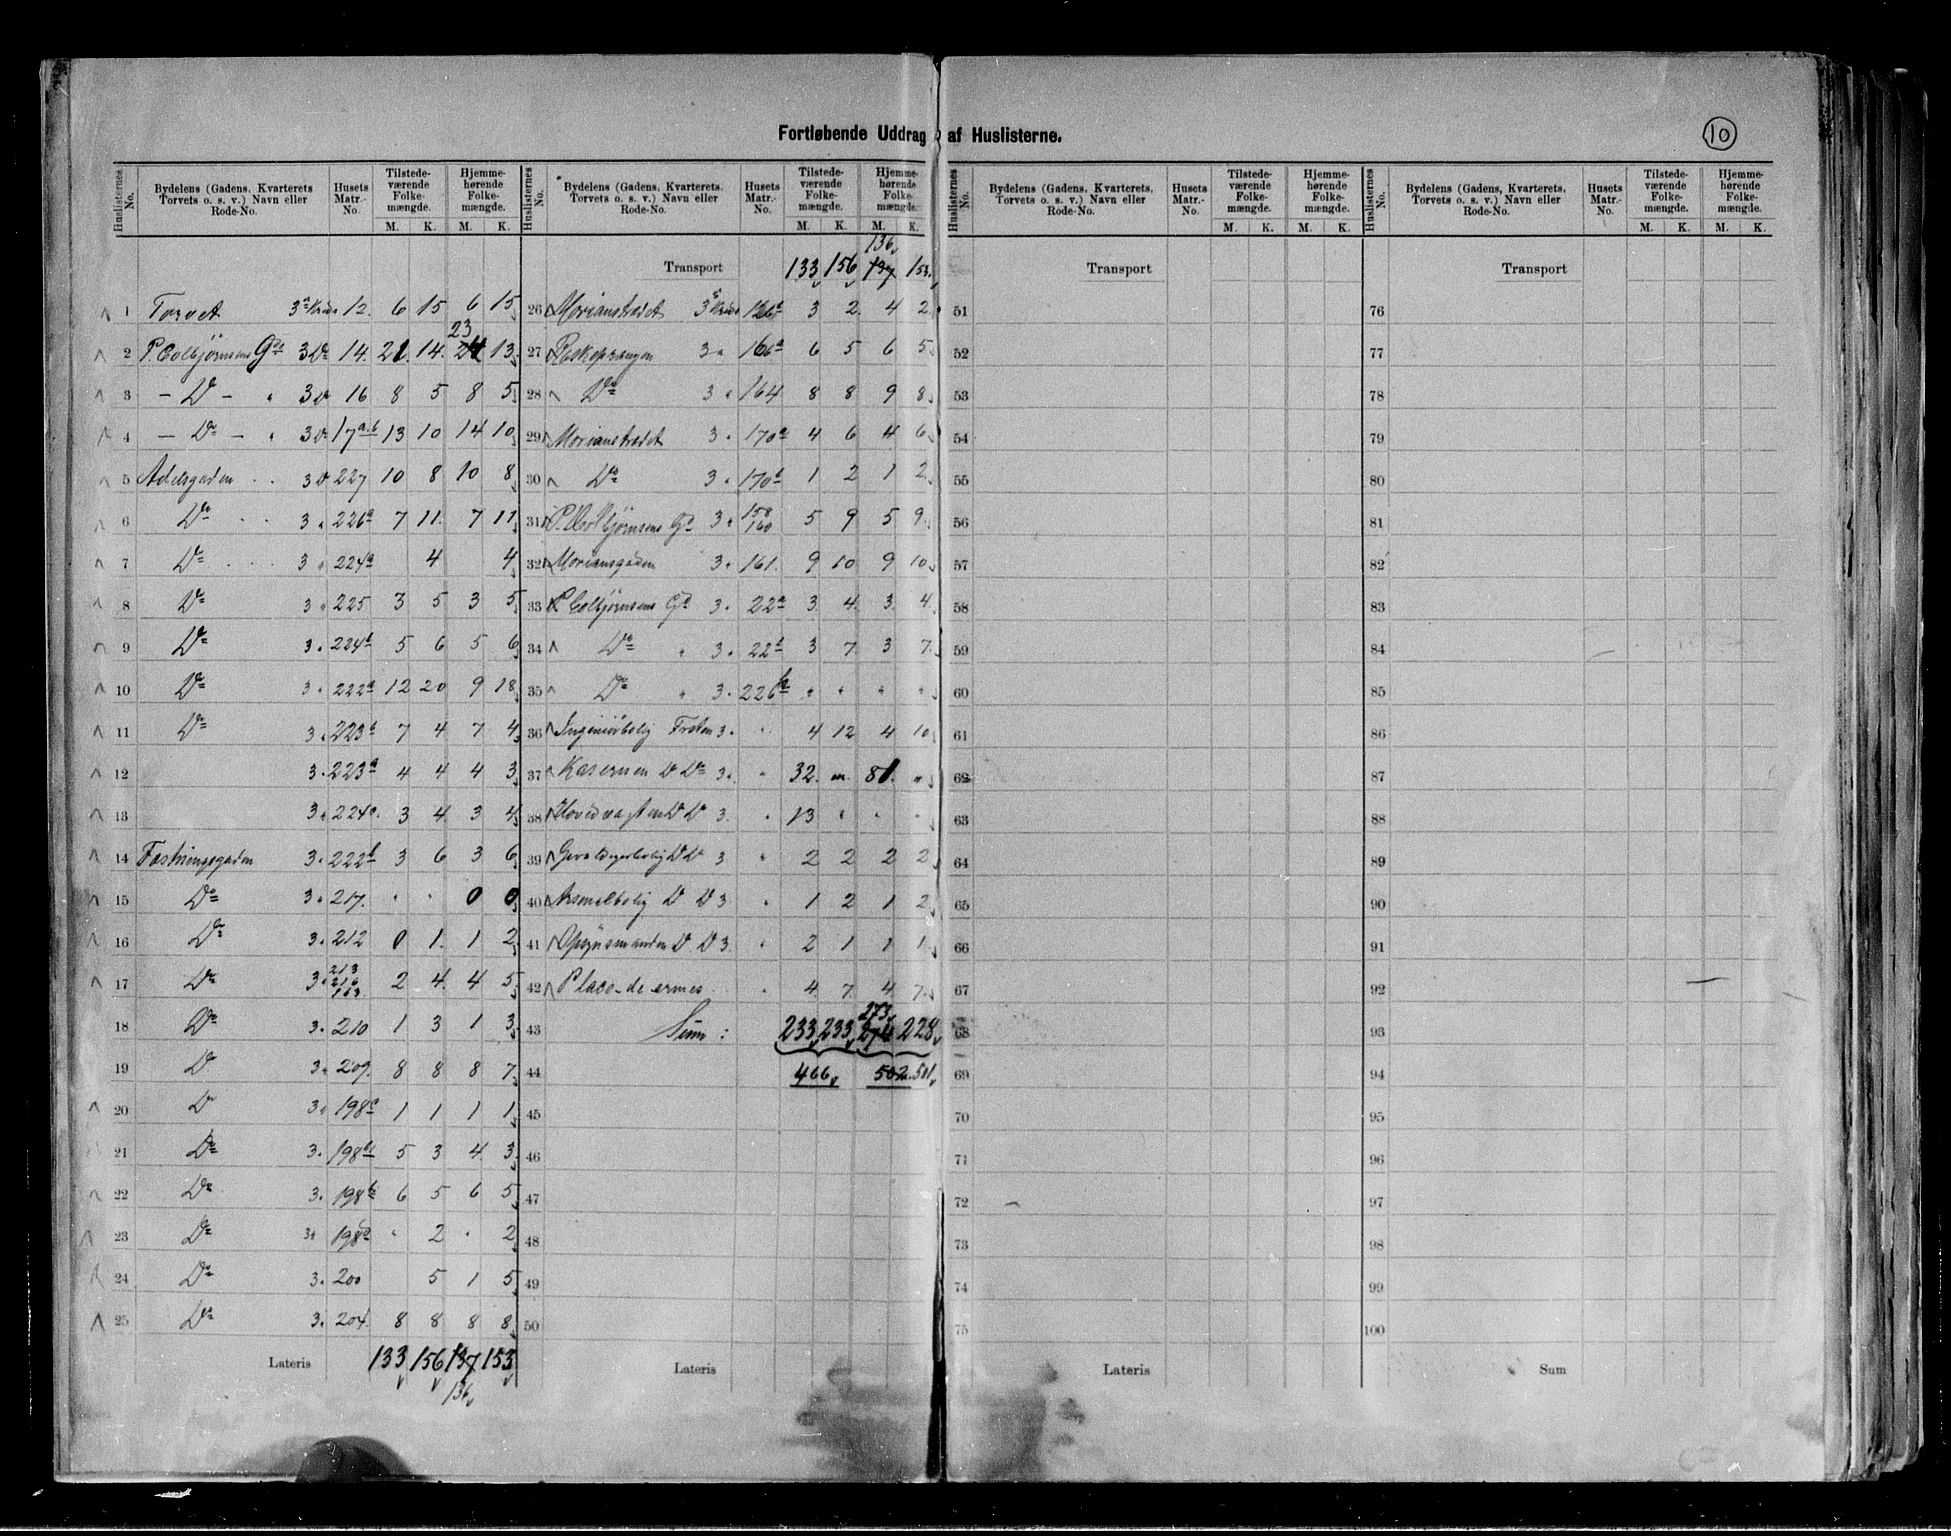 Fortløbende Uddrag af Huslisterne.
10
Huslisternes No. | Bydelens (Gadens, Kvarterets Torvets o. s. v.) Navn eller Rode-No. | Husets Matr.-No. | Tilstedeværende Folkemængde. M. K. | Hjemmehørende Folkemængde. M. K.
1 Torvet 3 12. 6 15 6 15
2 P. Colbjørnsens Gde 3 Do 14. 21. 14. 24 23 13
3 - Do - " 3 Do 16 8 5 8 5
4 - Do - " 3 Do 17 a.b 13 10 14 10
5 Adelsgaden 3 Do 227 10 8 10 8
6 Do 3 " 226a 7 11. 7 11
7 Do 3 " 224a 4 4
8 Do 3 " 225 3 5 3 5
9 Do 3 " 224b 5 6 5 6
10 Do 3 " 222a 12 20 9 18
11 Do 3 " 223b 7 4 7 4
12 3 " 223a 4 4 4 3
13 3 " 224 3 4 3 4
14 Fæstningsgaden 3 " 222b 3 6 3 6
15 Do 3 " 217. " " 0 0
16 Do 3 " 212 0 1. 1 2
17 Do 3 " 213 2 4. 4 5
18 Do 3 " 210 1 3 1 3
19 Do 3 " 209. 8 8 8 7.
20 Do 3 " 198c 1 1 1 1
21 Do 3 " 198 5 3 4 3
22 Do 3 " 198b 6 5 6 5
23 Do 3 " 198 " 2 " 2
24 Do 3 " 200 5 1 5
25 Do 3 " 204. 8 8 8 8
Lateris 133 156 137 153
136
Huslisternes No. | Bydelens (Gadens, Kvarterets. Torvets o. s. v.) Navn eller Rode-No. | Husets Matr.-No. | Tilstedeværende Folkemængde. M. K. | Hjemmehørende Folkemængde. M. K.
136
Transport 133 156 137 153
26 Morianstrædet 3 3 2. 4 2
27 3 " 166a 6 5 6 5
28 Do 3 " 164 8 8 9 8
29 Morianstrædet 3 " 170a 4 6 4 6
30 Do 3 " 170b 1 2 1 2
31 P. Colbjørnsens Gd 3 " 158 160 5 9 5 9
32 Moriansgaden 3 " 161. 9 10 9 10
33 P. Colbjørnsens Gd 3 " 22a 3 4. 3 4
34 Do " 3 " 22b 3 7. 3 7
35 Do " 3 " 226 " " " "
36 Ingeniörbolig Frsten 3 " " 4 12 4 10
37 Kasernen D Do 3 " " 32. " 81. "
38 Hovedvagten D Do 3. " 13 " " "
39 Do 3 " 2 2 2 2
40 Arsenalbolig D D 3 " 1 2 1 2
41 Opsynsmanden D D 3. " 2 1 1 1
42 Place de armes " 4 7 4 7
273
43 Sum : 233 233 274 228
44 466 502 501
45
46
47
48
49
50
Lateris
Huslisternes No. | Bydelens (Gadens, Kvarterets, Torvets o. s. v.) Navn eller Rode-No. | Husets Matr.-No. | Tilstedeværende Folkemængde. M. K. | Hjemmehørende Folkemængde. M. K.
Transport
51
52
53
54
55
56
57
58
59
60
61
62
63
64
65
66
67
68
69
70
71
72
73
74
75
Lateris
Huslisternes No. | Bydelens (Gadens, Kvarterets, Torvets o. s. v.) Navn eller Rode-No. | Husets Matr.-No. | Tilstedeværende Folkemængde. M. K. | Hjemmehørende Folkemængde. M. K.
Transport
76
77
78
79
80
81
82
83
84
85
86
87
88
89
90
91
92
93
94
95
96
97
98
99
100
Sum